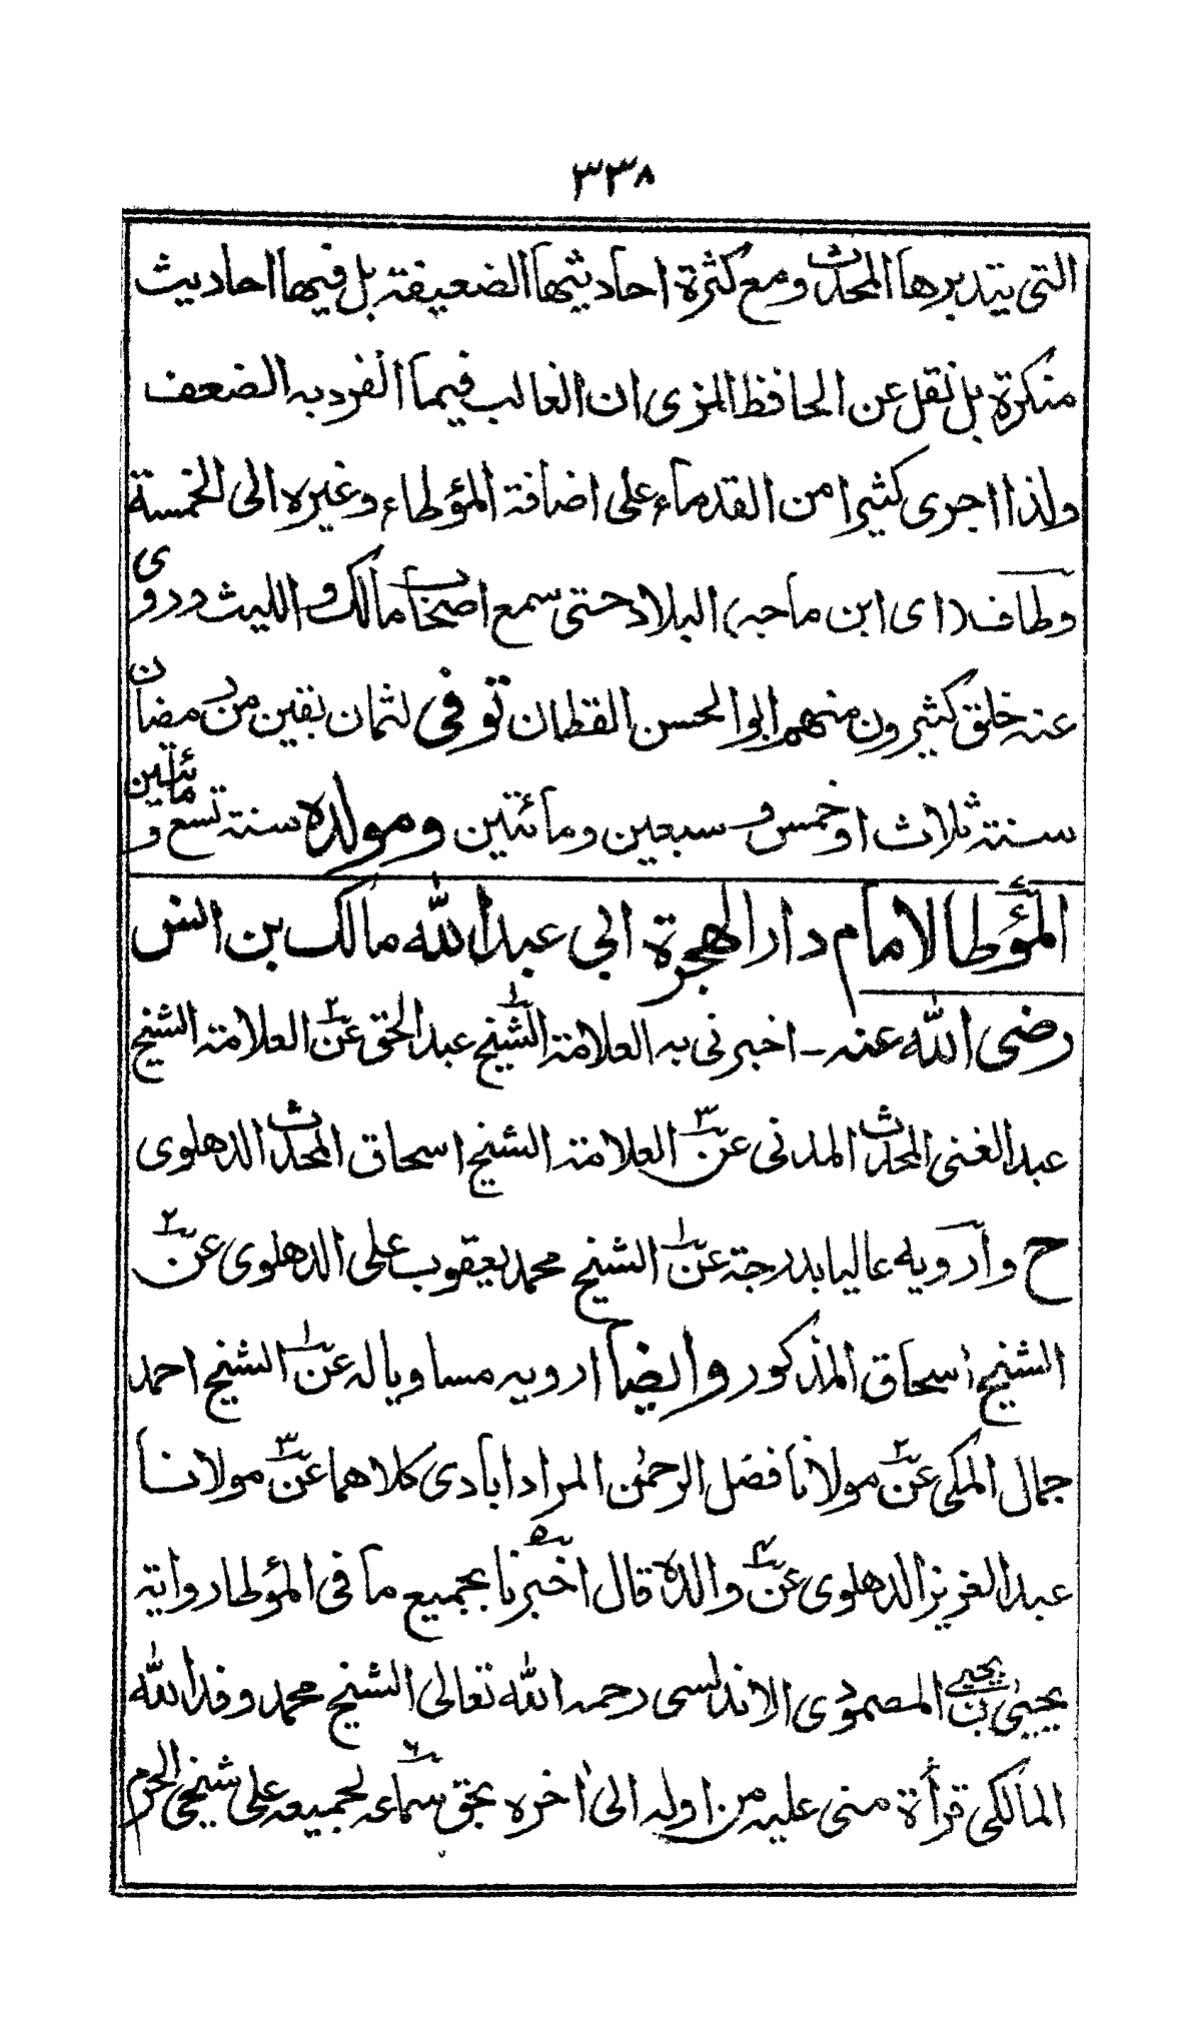 ٣٣٨
التي يتدبرها المحدث ومع كثرة احاديثها الضعيفة بل فيها احاديث
منكرة بل نقل عن الحافظ المزى ان الغالب فيما انفرد به الضعف
ولذا اجرى كثيرا من القدماء على اضافة المؤطاء وغيره الى الخمسة
وطاف (اى ابن ماجه) البلاد حتى سمع اصحاب مالك و الليث وروى
عنه خلق كثيرون منهم ابو الحسن القطان توفى لثمان بقين من رمضان
سنة ثلاث او خمس و سبعين ومائتين ومولده سنة تسع و مائتين
المؤطا لامام دار الهجرة ابي عبد الله مالك بن انس
رضى الله عنه ـ اخبرنى به العلامة الشيخ ١ عبد الحق عن ٢ العلامة الشيخ
عبد الغنى المحدث المدنى عن ٣ العلامة الشيخ اسحاق المحدث الدهلوى
ح وأرويه عاليا بدرجة عن ١ الشيخ محمد يعقوب على الدهلوى عن ٢
الشيخ اسحاق المذكور وايضا ارويه مساويا له عن ١ الشيخ احمد
جمال المكى عن ٢ مولانا فضل الرحمٰن المرادابادى كلاهما عن ٣ مولانا
عبد العزيز الدهلوى عن ٤ والده قال اخبرنا ٥ بجميع ما فى المؤطا رواية
يحيىٰ بن يحيى المصمودى الاندلسى رحمه الله تعالى الشيخ محمد وفد الله
المالكى قرأة منى عليه من اوله الىٰ اخره بحق سماعه ٦ لجميعه على شيخى الحرم